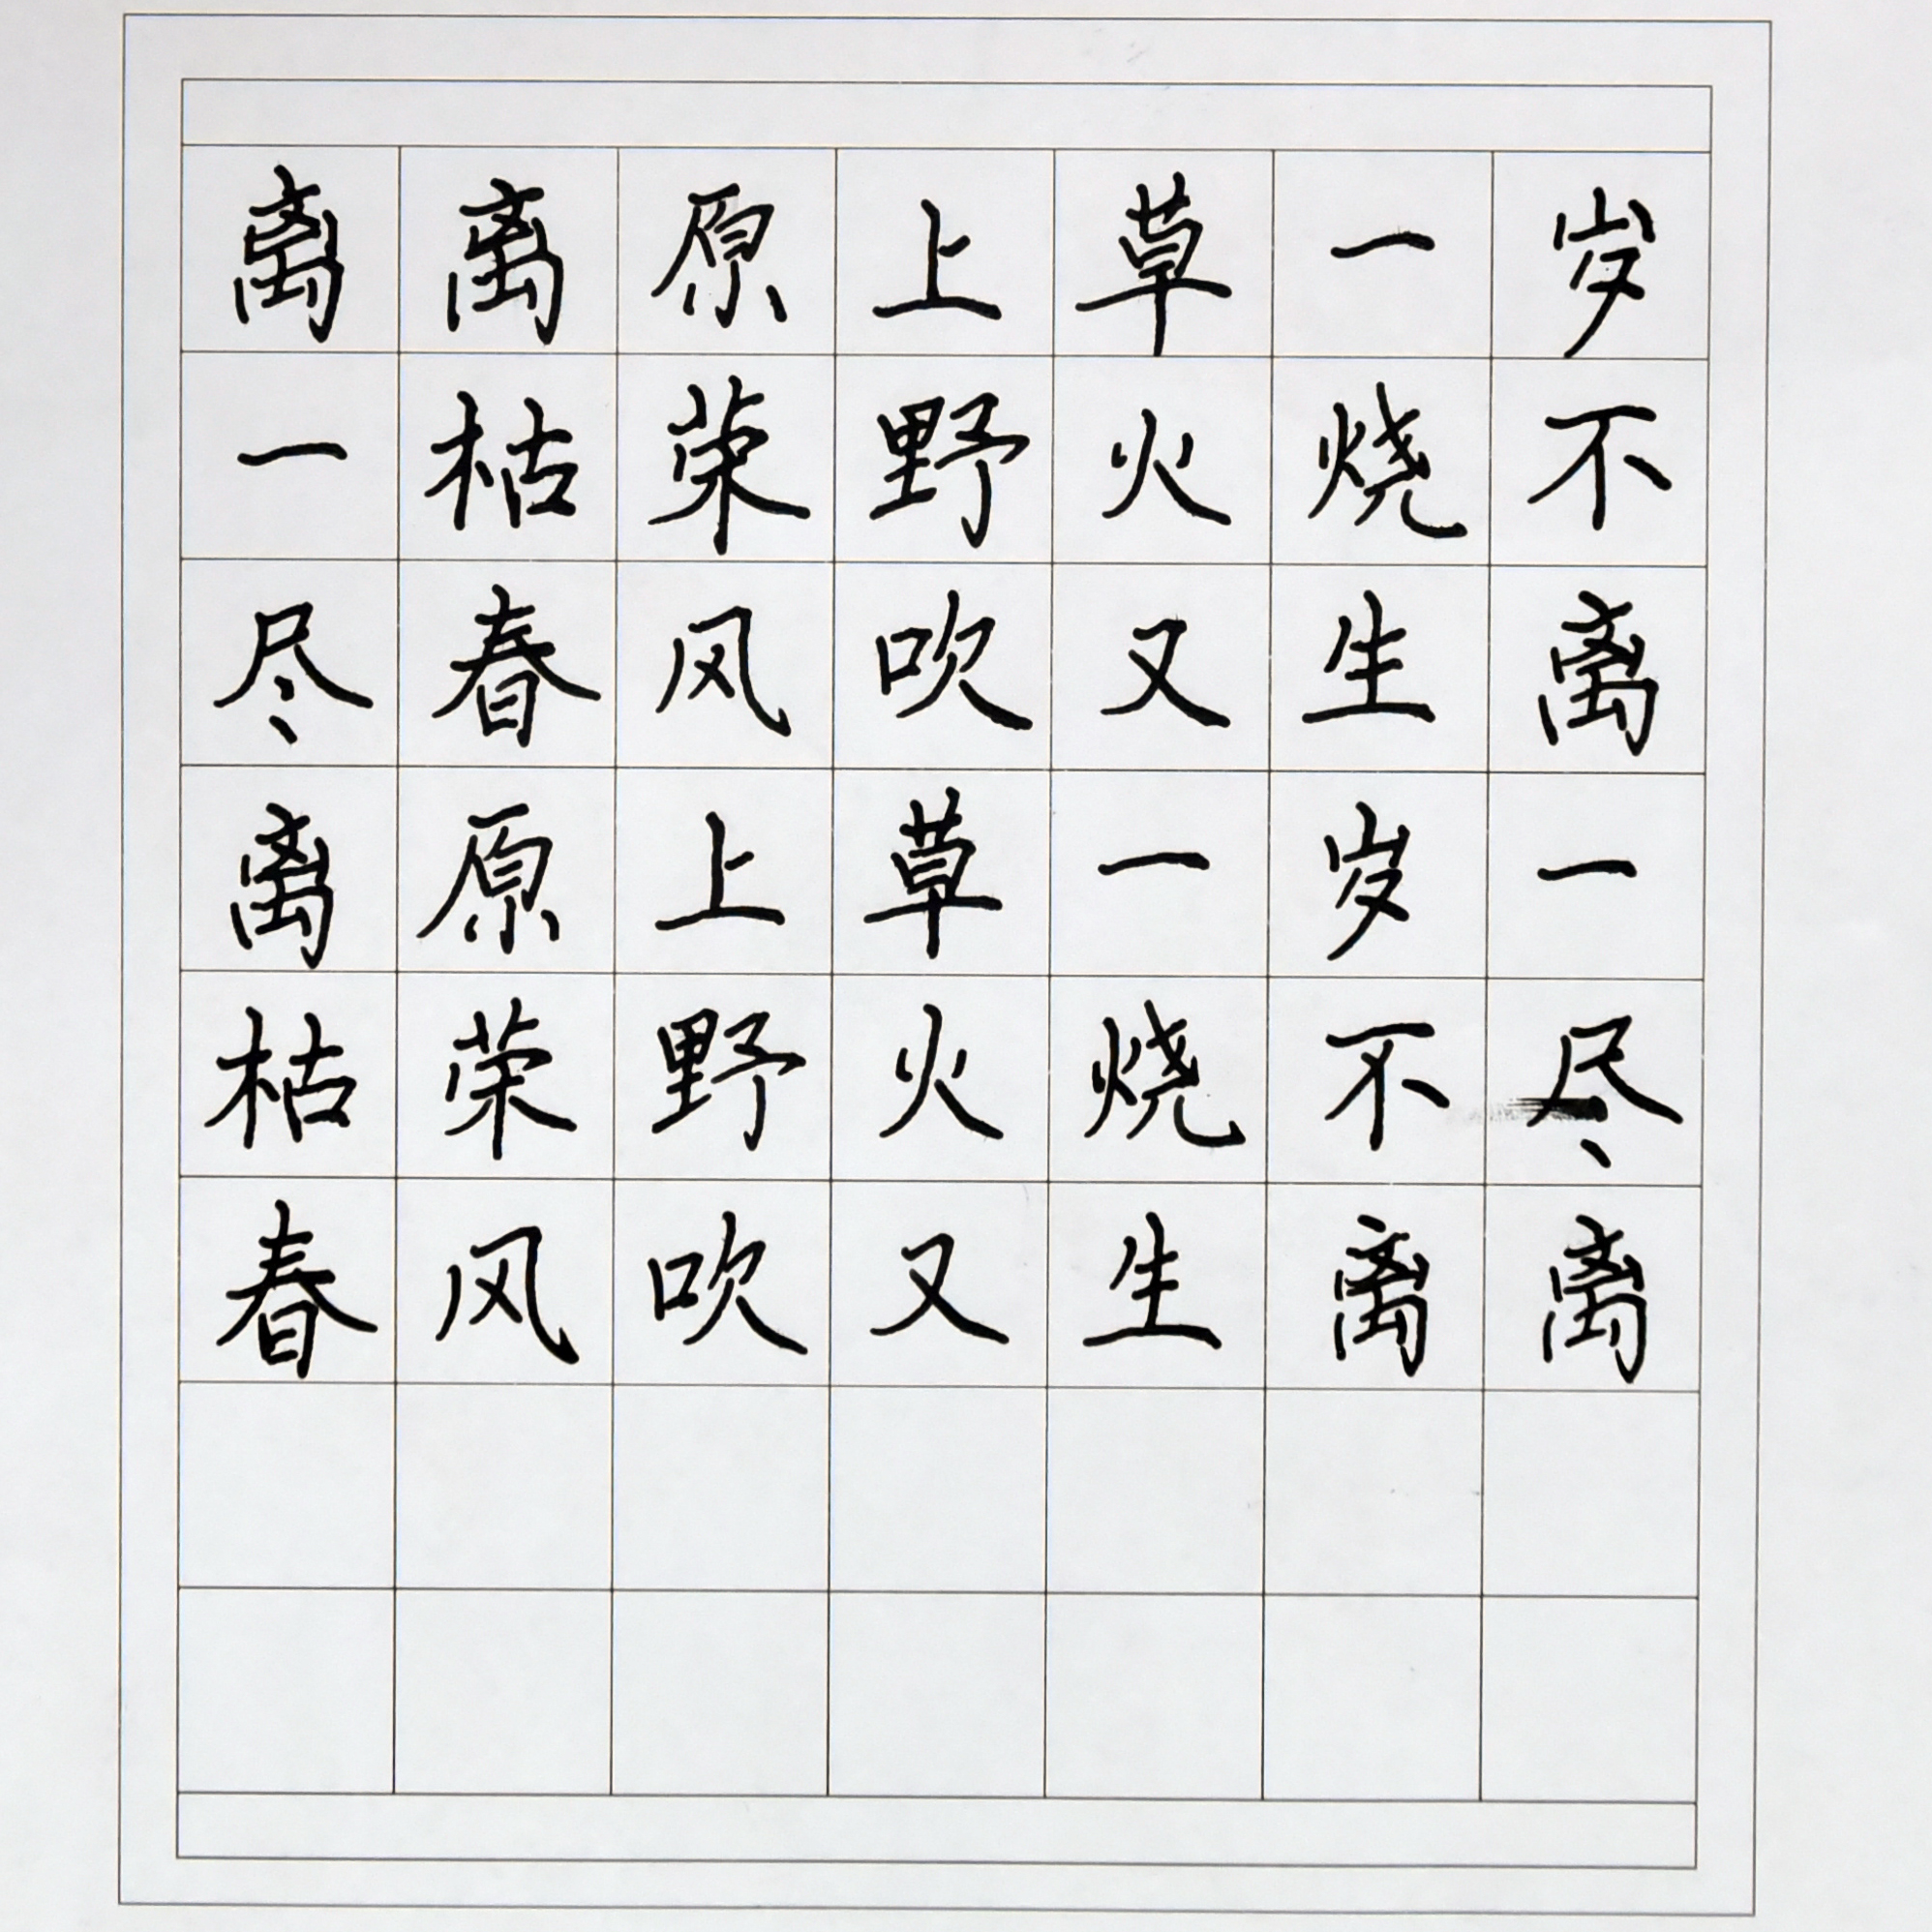 离离原上草一岁
一枯荣野火烧不
尽春风吹又生离
离原上草一岁一
枯荣野火烧不尽
春风吹又生离离